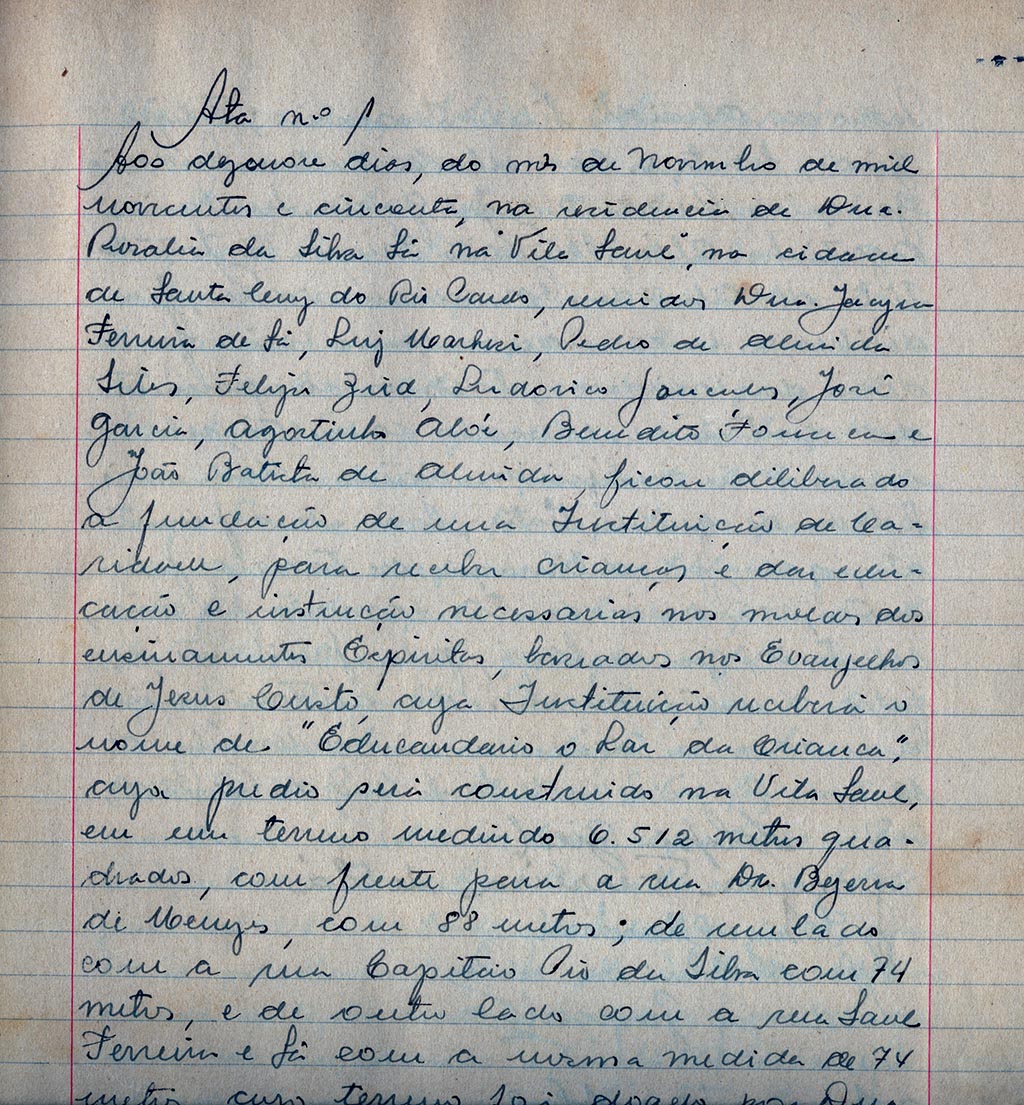 Ata n.º 1
Aos dezenove dias, do mês de Novembro de mil
novecentos e cincoenta, na residencia de Dna.
Rosalia da Silva Sá na "Vila Saul", na cidade
de Santa Cruz do Rio Pardo, reunidos Dna. Jacyra
Ferreira de Sá, Luiz Marchezi, Pedro de Almeida
Sales, Felipe Zaid, Ludovico Gonçalves, José
Garcia, Agostinho Alói, Benedito Fonseca e
João Batista de Almeida, ficou deliberado
a fundação de uma Instituição de Ca-
ridade, para receber crianças e dar edu-
cação e instrução necessarias nos moldes dos
ensinamentos Espiritas, baseados nos Evangelhos
de Jesus Cristo, cuja Instituição receberá o
nome de "Educandario o Lar da Criança",
cujo predio será construido na Vila Saul,
em um terreno medindo 6.512 metros qua-
drados, com frente para a rua Dr. Bezerra
de Menezes, com 88 metros; de um lado
com a rua Capitão Pio da Silva com 74
metros, e de outro lado com a rua Saul
Ferreira e Sá com a mesma medida de 74
metros, cujo terreno foi doado por Dna